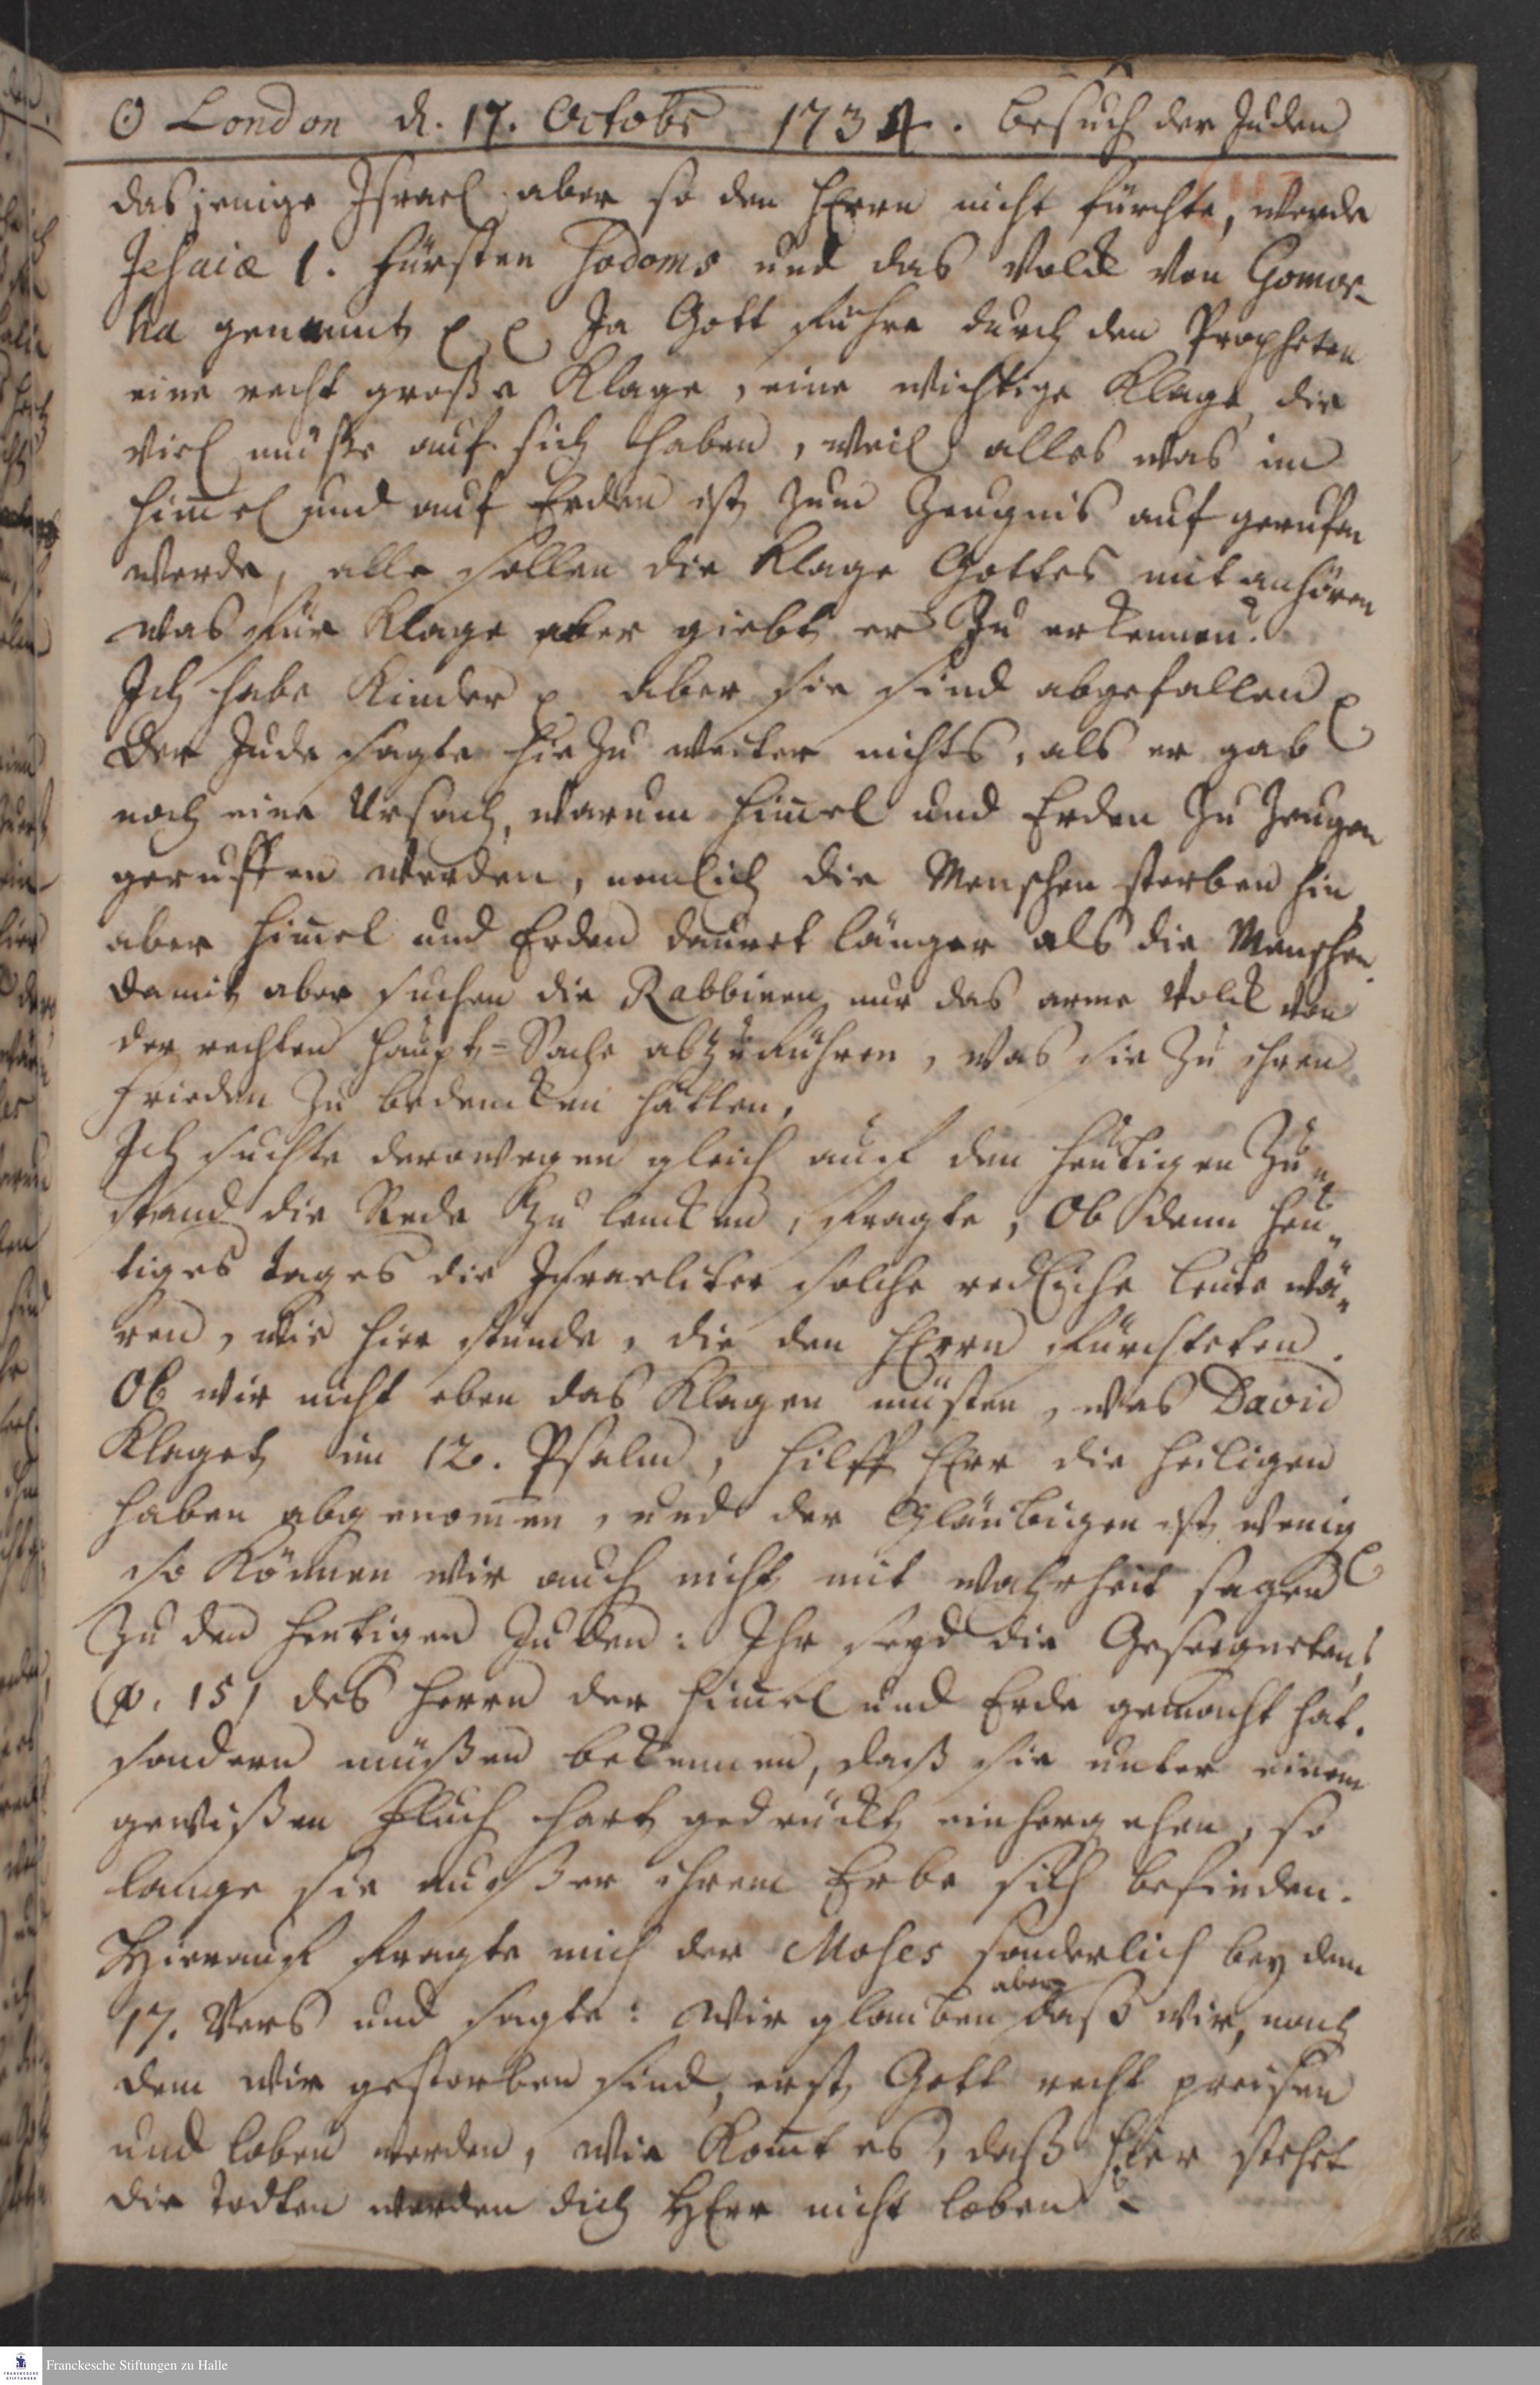 ☉ London d. 17. Octobr 1734. Besuch der Juden
dasjenige Israel aber so den HErrn nicht fürchte, werde
Jesaiæ 1. Fürsten Sodoms und das Volck von Gomor-
ha genannt p p Ja Gott führe durch den Propheten
eine recht große Klage, eine wichtige Klage, die
viel müße auf sich haben, weil alles was im
Him̄el und auf Erden ist zum Zeugnis auf gerufen
werde, alle sollen die Klage Gottes mit anhören
was für Klage aber giebt er zu erkennen?
Ich habe Kinder p aber sie sind abgefallen p
Der Jude sagte hiezu weiter nichts, als er gab
noch eine Ursach, warum Him̄el und Erden zu Zeugen
geruffen werden, nemlich die Menschen sterben hin
aber Him̄el und Erden dauret länger als die Menschen.
Damit aber suchen die Rabbinen nur das arme Volck von
der rechten Haupt-Sache abzuführen, was sie zu ihren
Frieden zu bedencken hätten.
Ich suchte derowegen gleich auf den heutigen Zu-
stand die Rede zu lencken, fragte, Ob denn heu-
tiges tages die Israeliten solche redliche leute wä-
ren, wie hier stünde, die den HErrn fürchteten.
Ob wir nicht eben das Klagen müsten, was David
Klaget im 12. Psalm, Hilff HErr die Heiligen
haben abgenom̄en, und der Gläubigen ist wenig
so Können wir auch nicht mit Wahrheit sagen
zu den heutigen Juden: Ihr seyd die Gesegneten
(v. 15) des Herrn der Him̄el und Erde gemacht hat.
sondern müßen bekennen, daß sie unter einem
gewißen Fluch hart gedruckt einhergehen, so
lange sie außer ihrem Erbe sich befinden.
Hierauf fragte mich der Moses sonderlich bey dem
17. Vers und sagte: Wir glauben aber daß wir, nach
dem wir gestorben sind, erst Gott recht preisen
und loben werden, wie Kom̄t es, daß hier stehet
die Todten werden dich HErr nicht loben?
Franckesche Stiftungen zu Halle